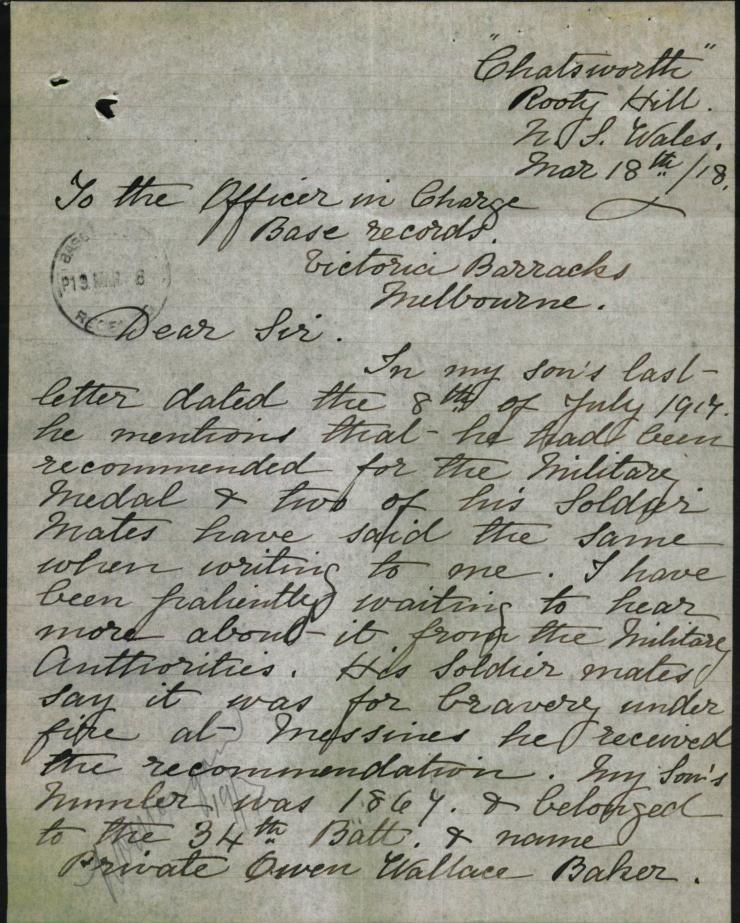 "Chatsworth"
Rooty Hill.
N. S. Wales.
Mar 18th/18.
To the Officer in Charge
Base records.
Victoria Barracks
Melbourne.
BASE
P19 MAR 8
Dear Sir.
In my son's last
letter dated the 8th of July 1917.
he mentions that he had been
recommended for the Military
Medal & two of his Soldier
Mates have said the same
when writing to me. I have
been patiently waiting to hear
more about it from the Military
Authorities. His Soldier mates
say it was for bravery under
fire at Messines he received
the recommendation. My Son's
Number was 1867. & belonged
to the 34th Batt. & name
Private Owen Wallace Baker.